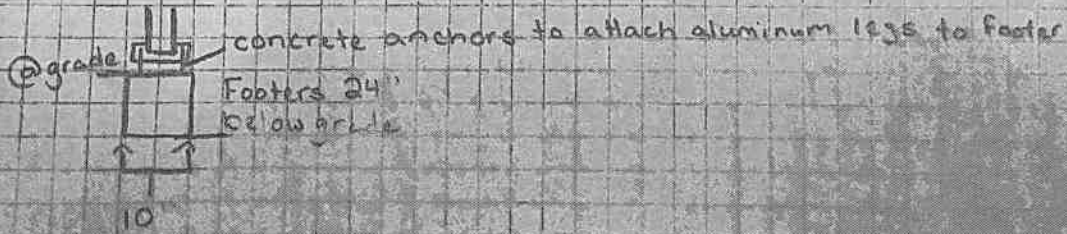 concrete anchors to attach aluminum legs to footer
@grade
Footers 24"
below grade
10